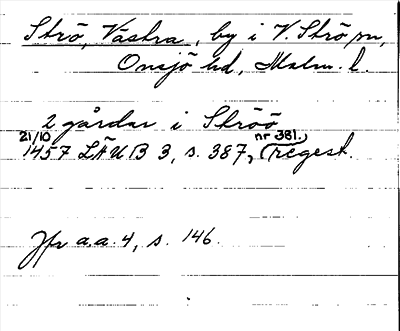 Strö, Västra, by i V. Strö sn,
Onsjö hd, Malm. l.
2 gårdar i Ströö
21/10 1457 LÄUB 3, s. 387, (regest. nr 381.)
Jfr a.a. 4, s. 146.